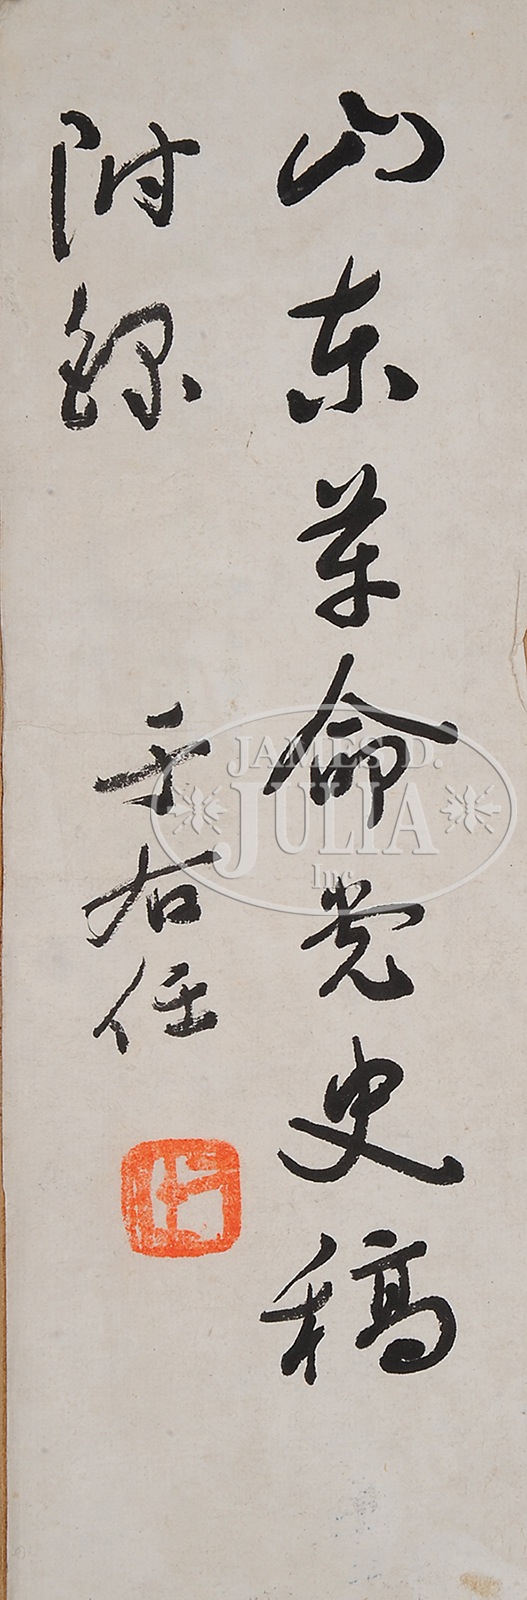 山东革命党史稿
附錄
于右任
JAMES D.
JULIA
Inc.